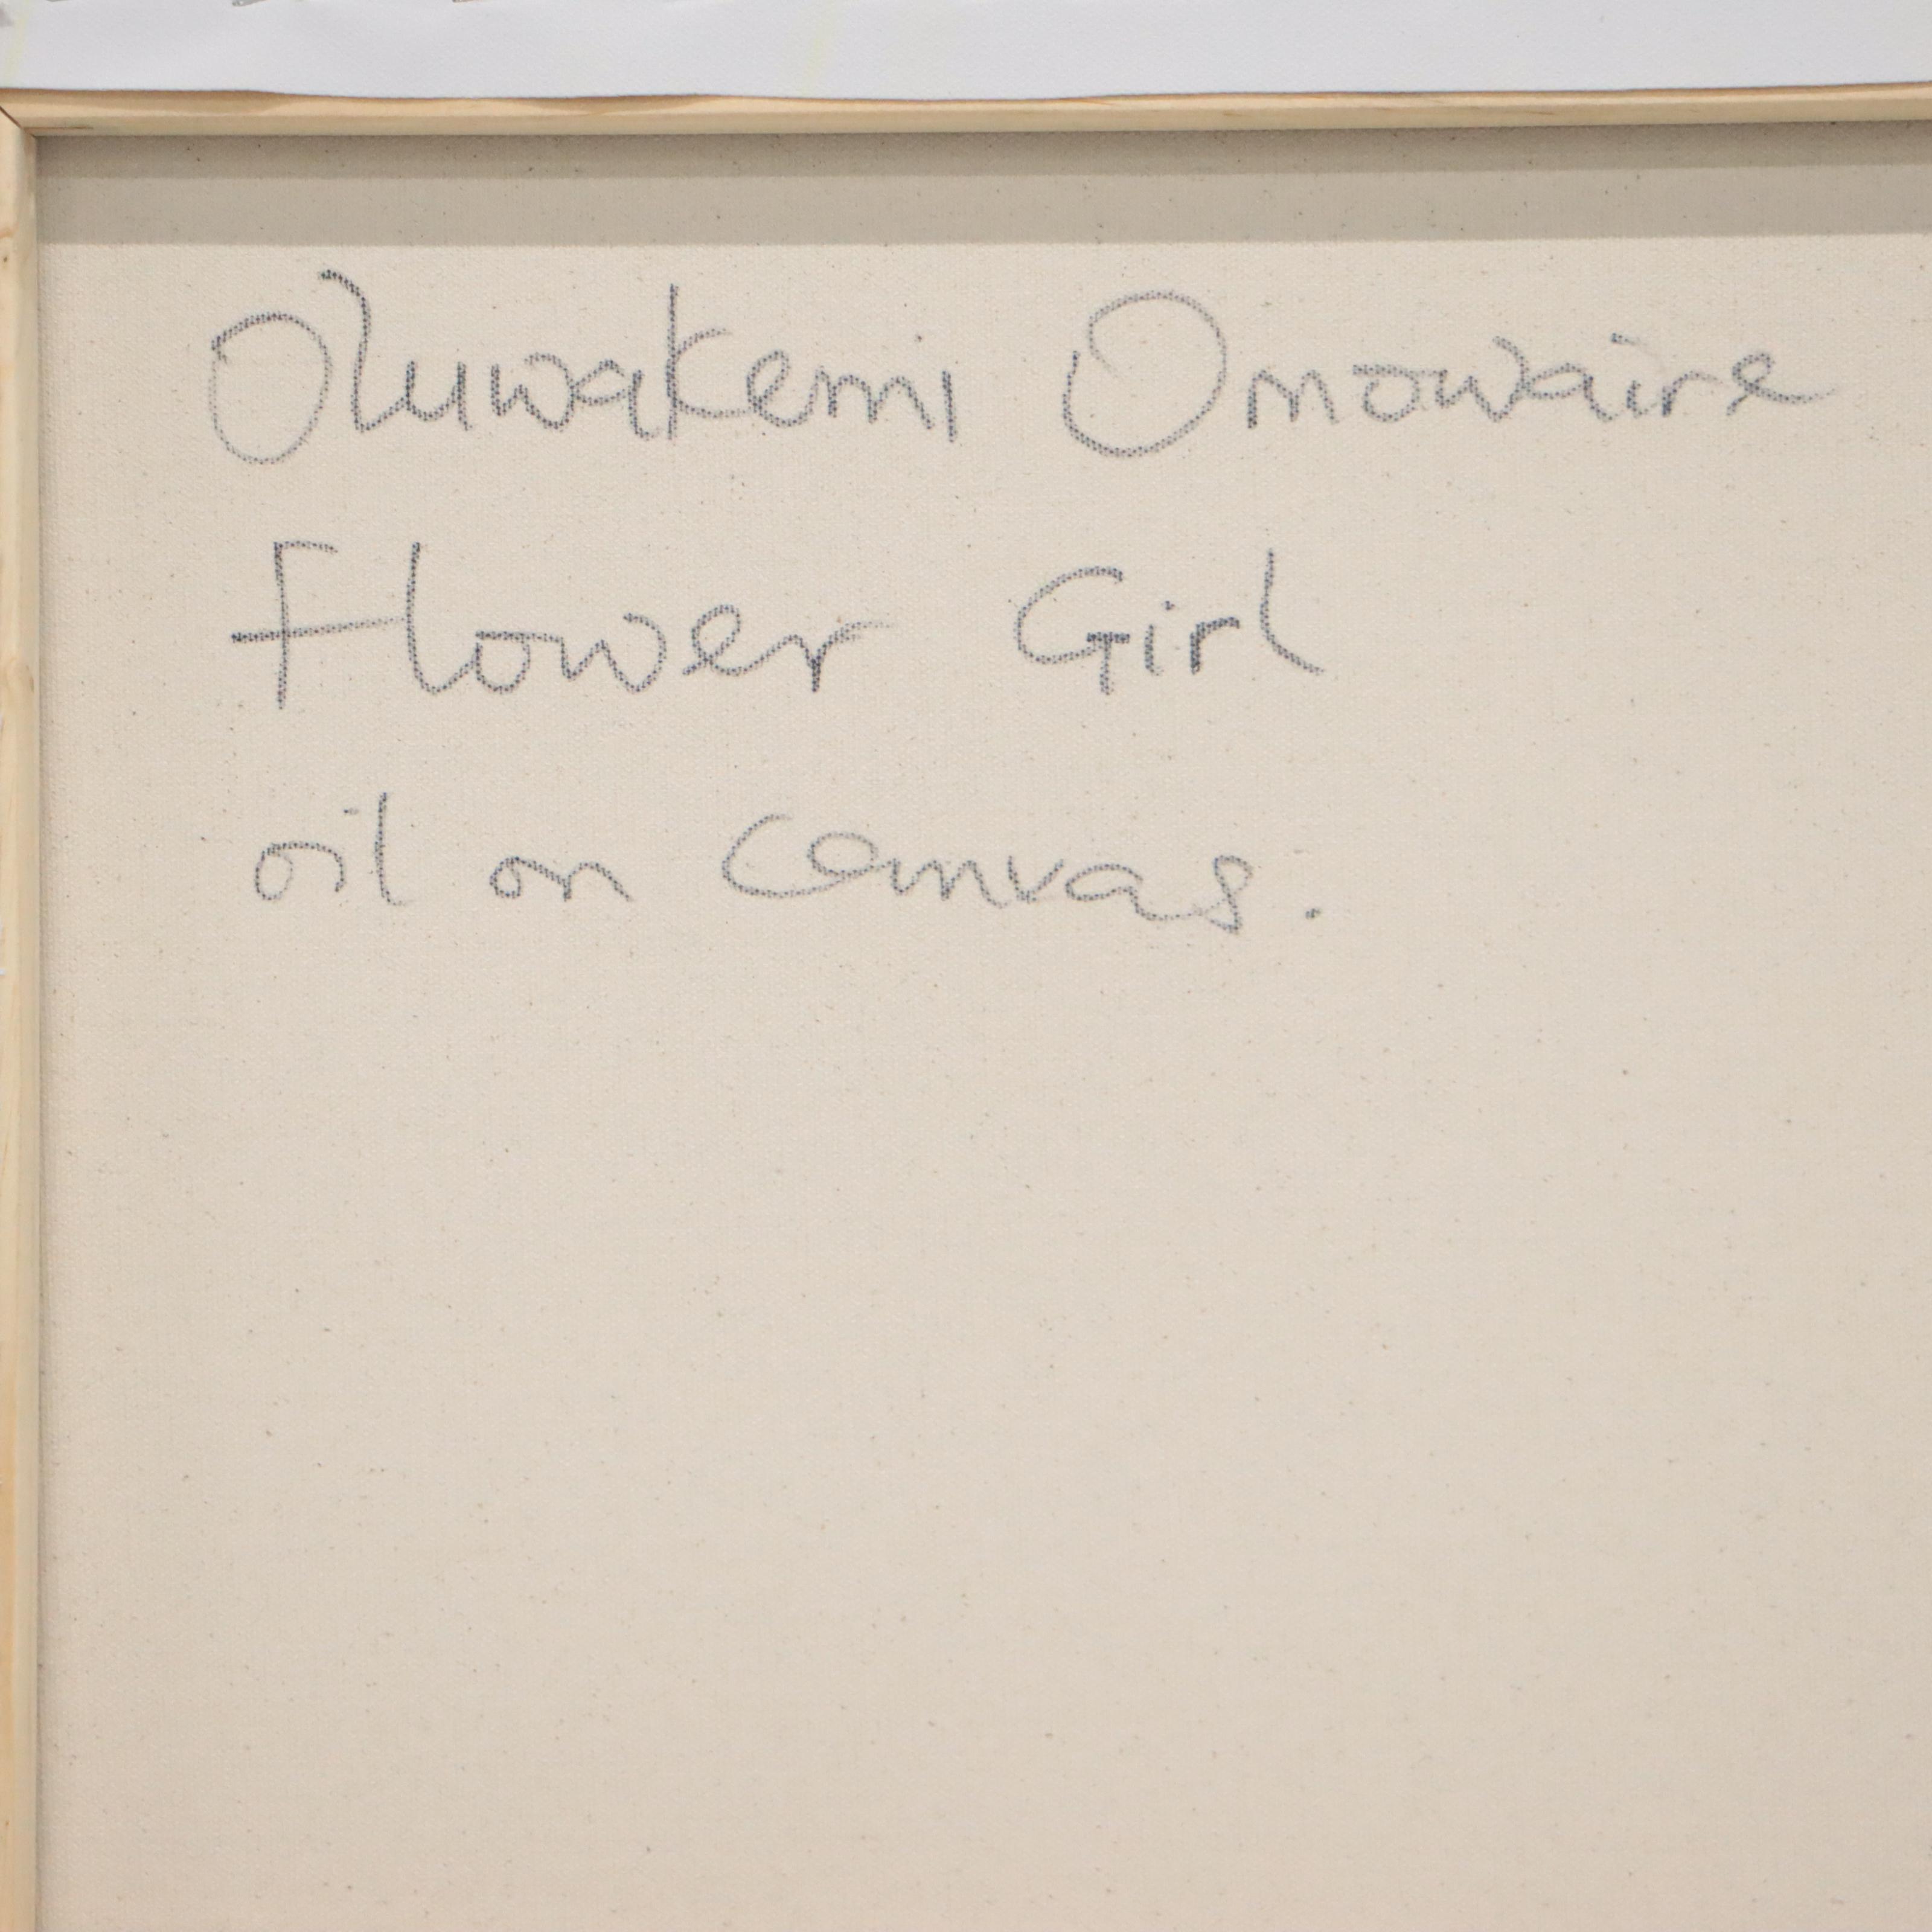 Oluwakemi Omowaire
Flower Girl
oil on Canvas.